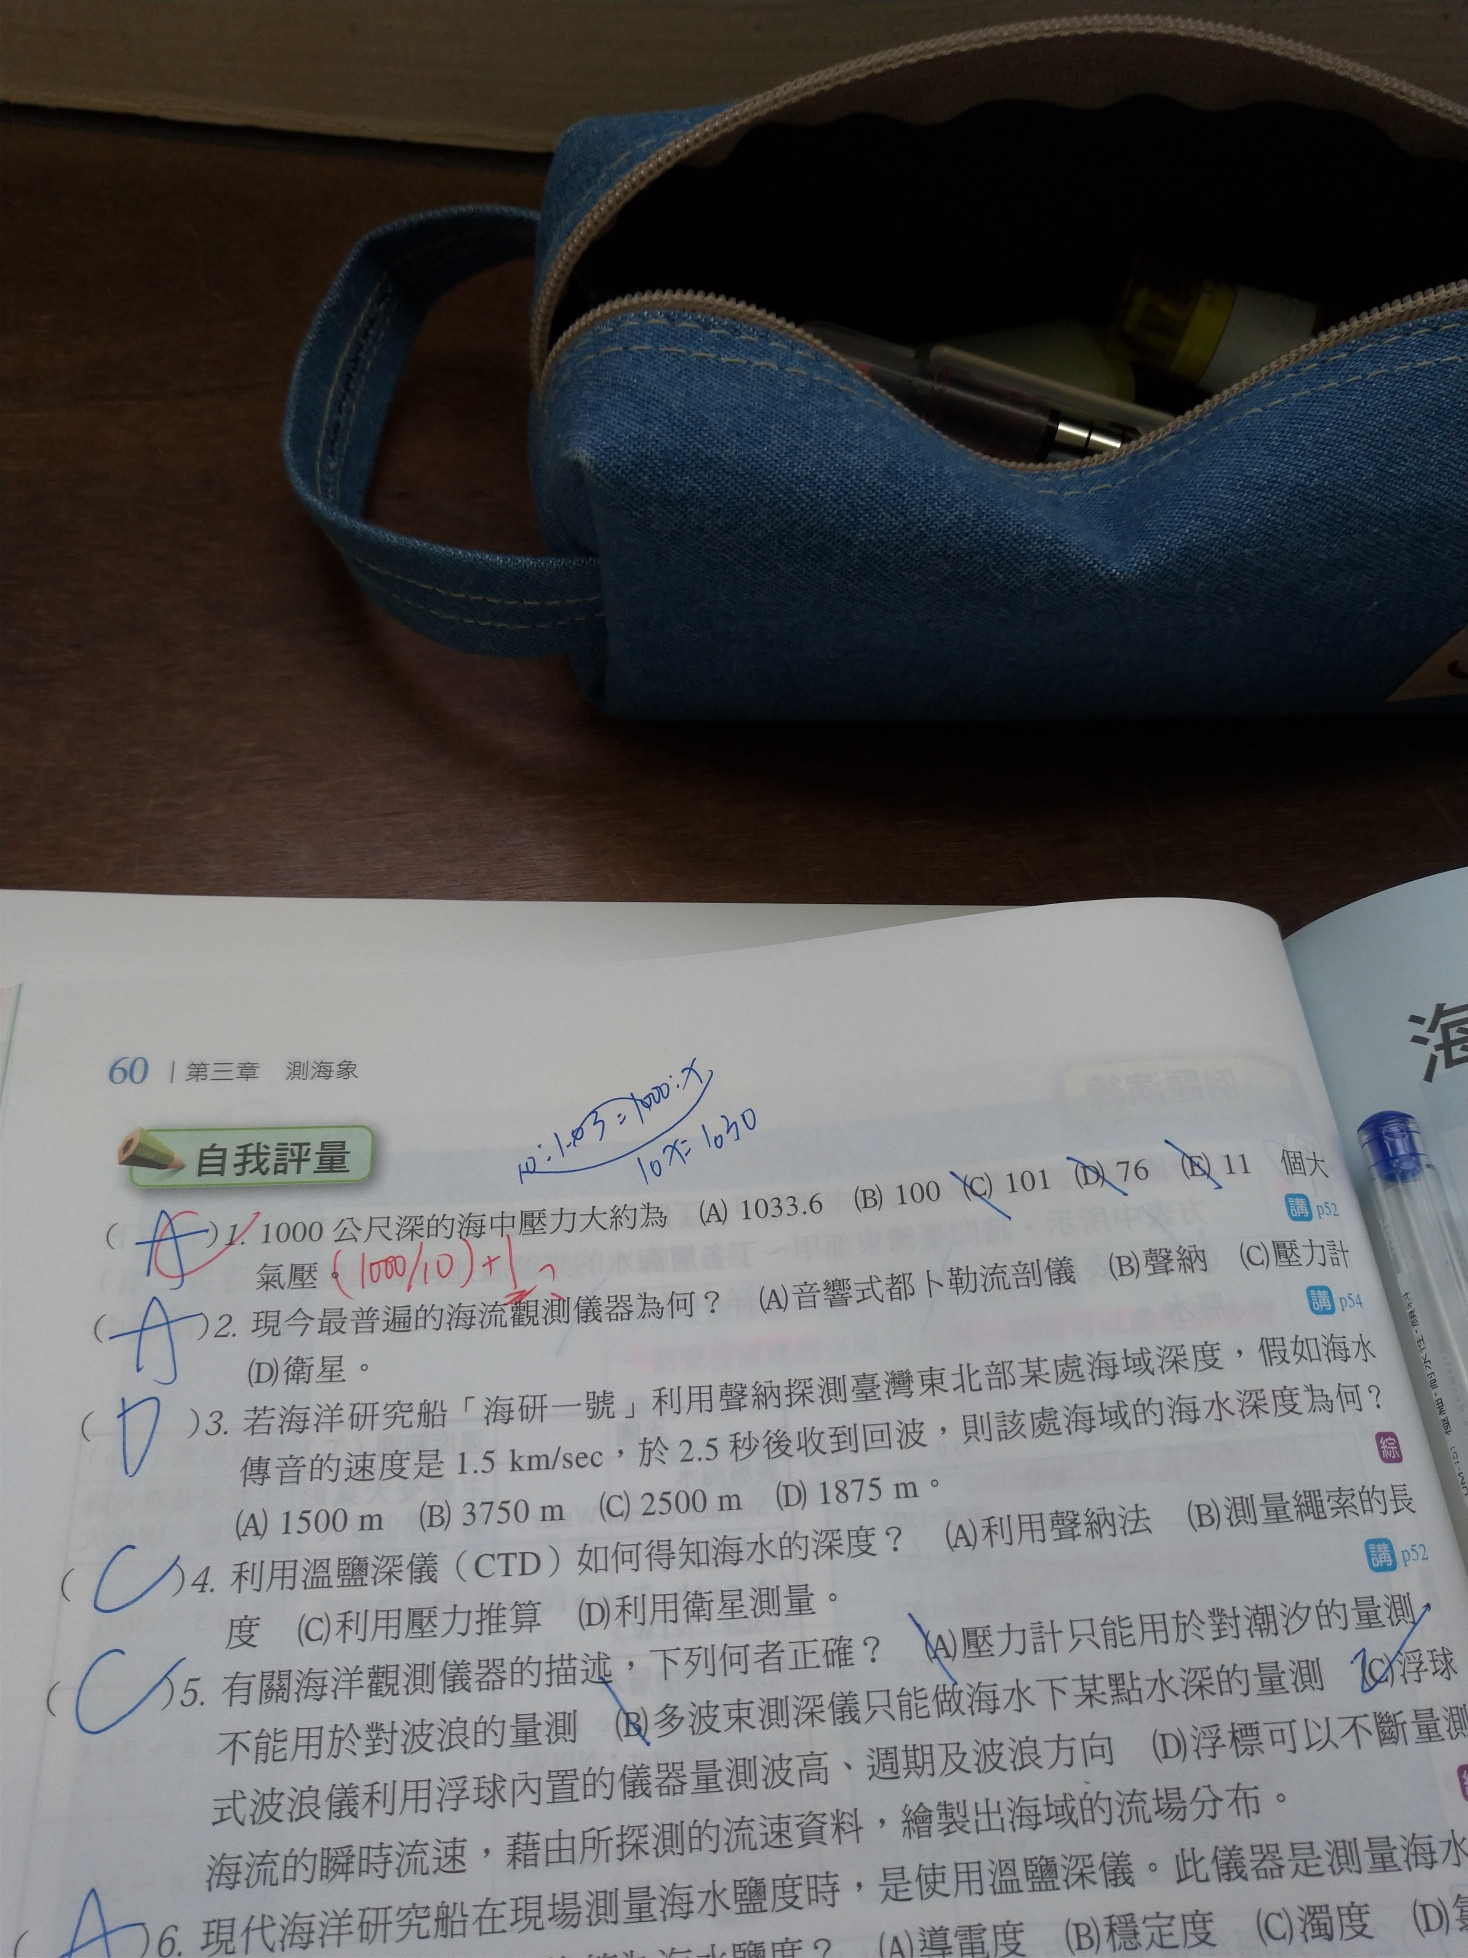 海
60 | 第三章 測海象
10:1.03=1000:x
10x=1030
自我評量
( A )1. 1000 公尺深的海中壓力大約為 (A) 1033.6 (B) 100 (C) 101 (D) 76 (E) 11 個大
氣壓。 (1000/10)+1 講 p52
( A )2. 現今最普遍的海流觀測儀器為何? (A)音響式都卜勒流剖儀 (B)聲納 (C)壓力計
(D)衛星。 講 p54
( D )3. 若海洋研究船「海研一號」利用聲納探測臺灣東北部某處海域深度,假如海水
傳音的速度是 1.5 km/sec,於 2.5 秒後收到回波,則該處海域的海水深度為何?
(A) 1500 m (B) 3750 m (C) 2500 m (D) 1875 m。 綜
( C )4. 利用溫鹽深儀(CTD)如何得知海水的深度? (A)利用聲納法 (B)測量繩索的長
度 (C)利用壓力推算 (D)利用衛星測量。 講 p52
( C )5. 有關海洋觀測儀器的描述,下列何者正確? (A)壓力計只能用於對潮汐的量測,
不能用於對波浪的量測 (B)多波束測深儀只能做海水下某點水深的量測 (C)浮球
式波浪儀利用浮球內置的儀器量測波高、週期及波浪方向 (D)浮標可以不斷量測
海流的瞬時流速,藉由所探測的流速資料,繪製出海域的流場分布。
( A )6. 現代海洋研究船在現場測量海水鹽度時,是使用溫鹽深儀。此儀器是測量海水
海水鹽度? (A)導電度 (B)穩定度 (C)濁度 (D)